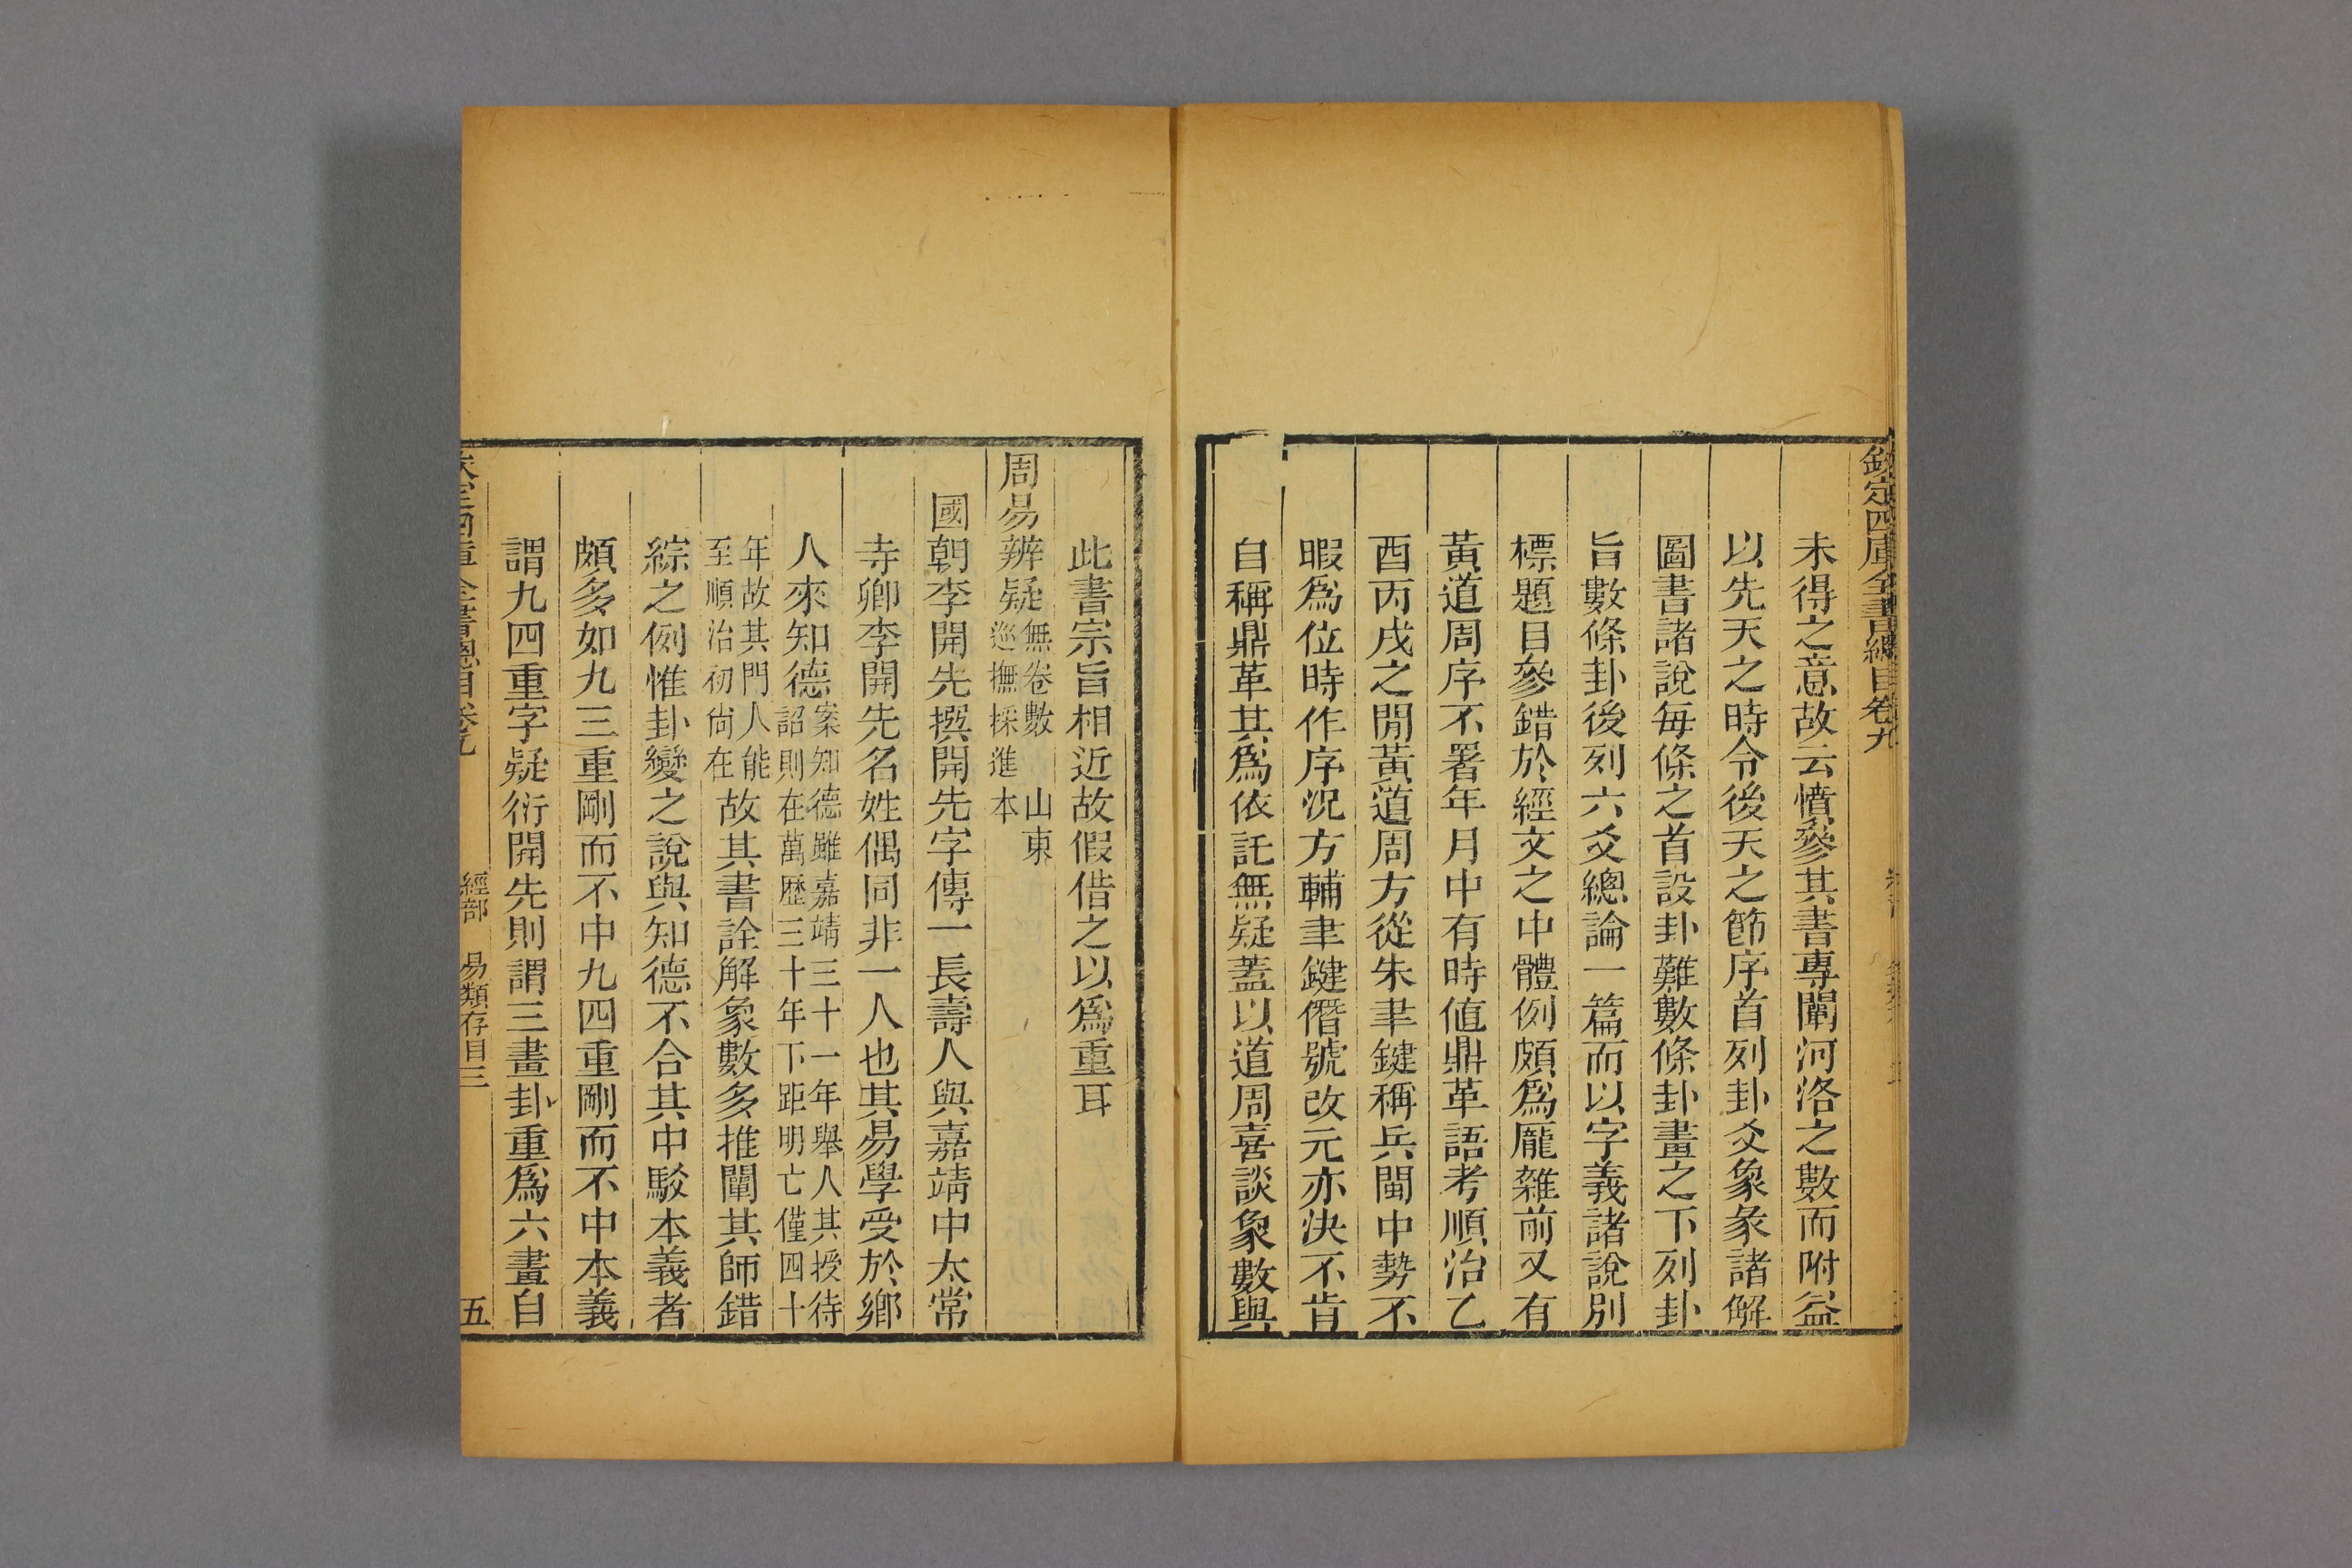 欽定四庫全書總目卷九
未得之意故云憤參其書專闡河洛之數而附益
以先天之時令後天之節序首列卦爻象彖諸解
圖書諸說每條之首設卦難數條卦畫之下列卦
旨數條卦後列六爻總論一篇而以字義諸說別
標題目參錯於經文之中體例頗爲厖雜前又有
黃道周序不署年月中有時值鼎革語考順治乙
酉丙戌之閒黃道周方從朱聿鍵稱兵閩中勢不
暇爲位時作序況方輔聿鍵僭號改元亦決不肯
自稱鼎革其爲依託無疑蓋以道周喜談象數與
此書宗旨相近故假借之以爲重耳
周易辨疑無卷數 山東
巡撫採進本
國朝李開先撰開先字傳一長壽人與嘉靖中太常
寺卿李開先名姓偶同非一人也其易學受於鄉
人來知德案知德雖嘉靖三十一年舉人其授待
詔則在萬歷三十年下距明亡僅四十
年故其門人能
至順治初尙在故其書詮解象數多推闡其師錯
綜之例惟卦變之說與知德不合其中駁本義者
頗多如九三重剛而不中九四重剛而不中本義
謂九四重字疑衍開先則謂三畫卦重爲六畫自
欽定四庫全書總目卷九 經部 易類存目三 五